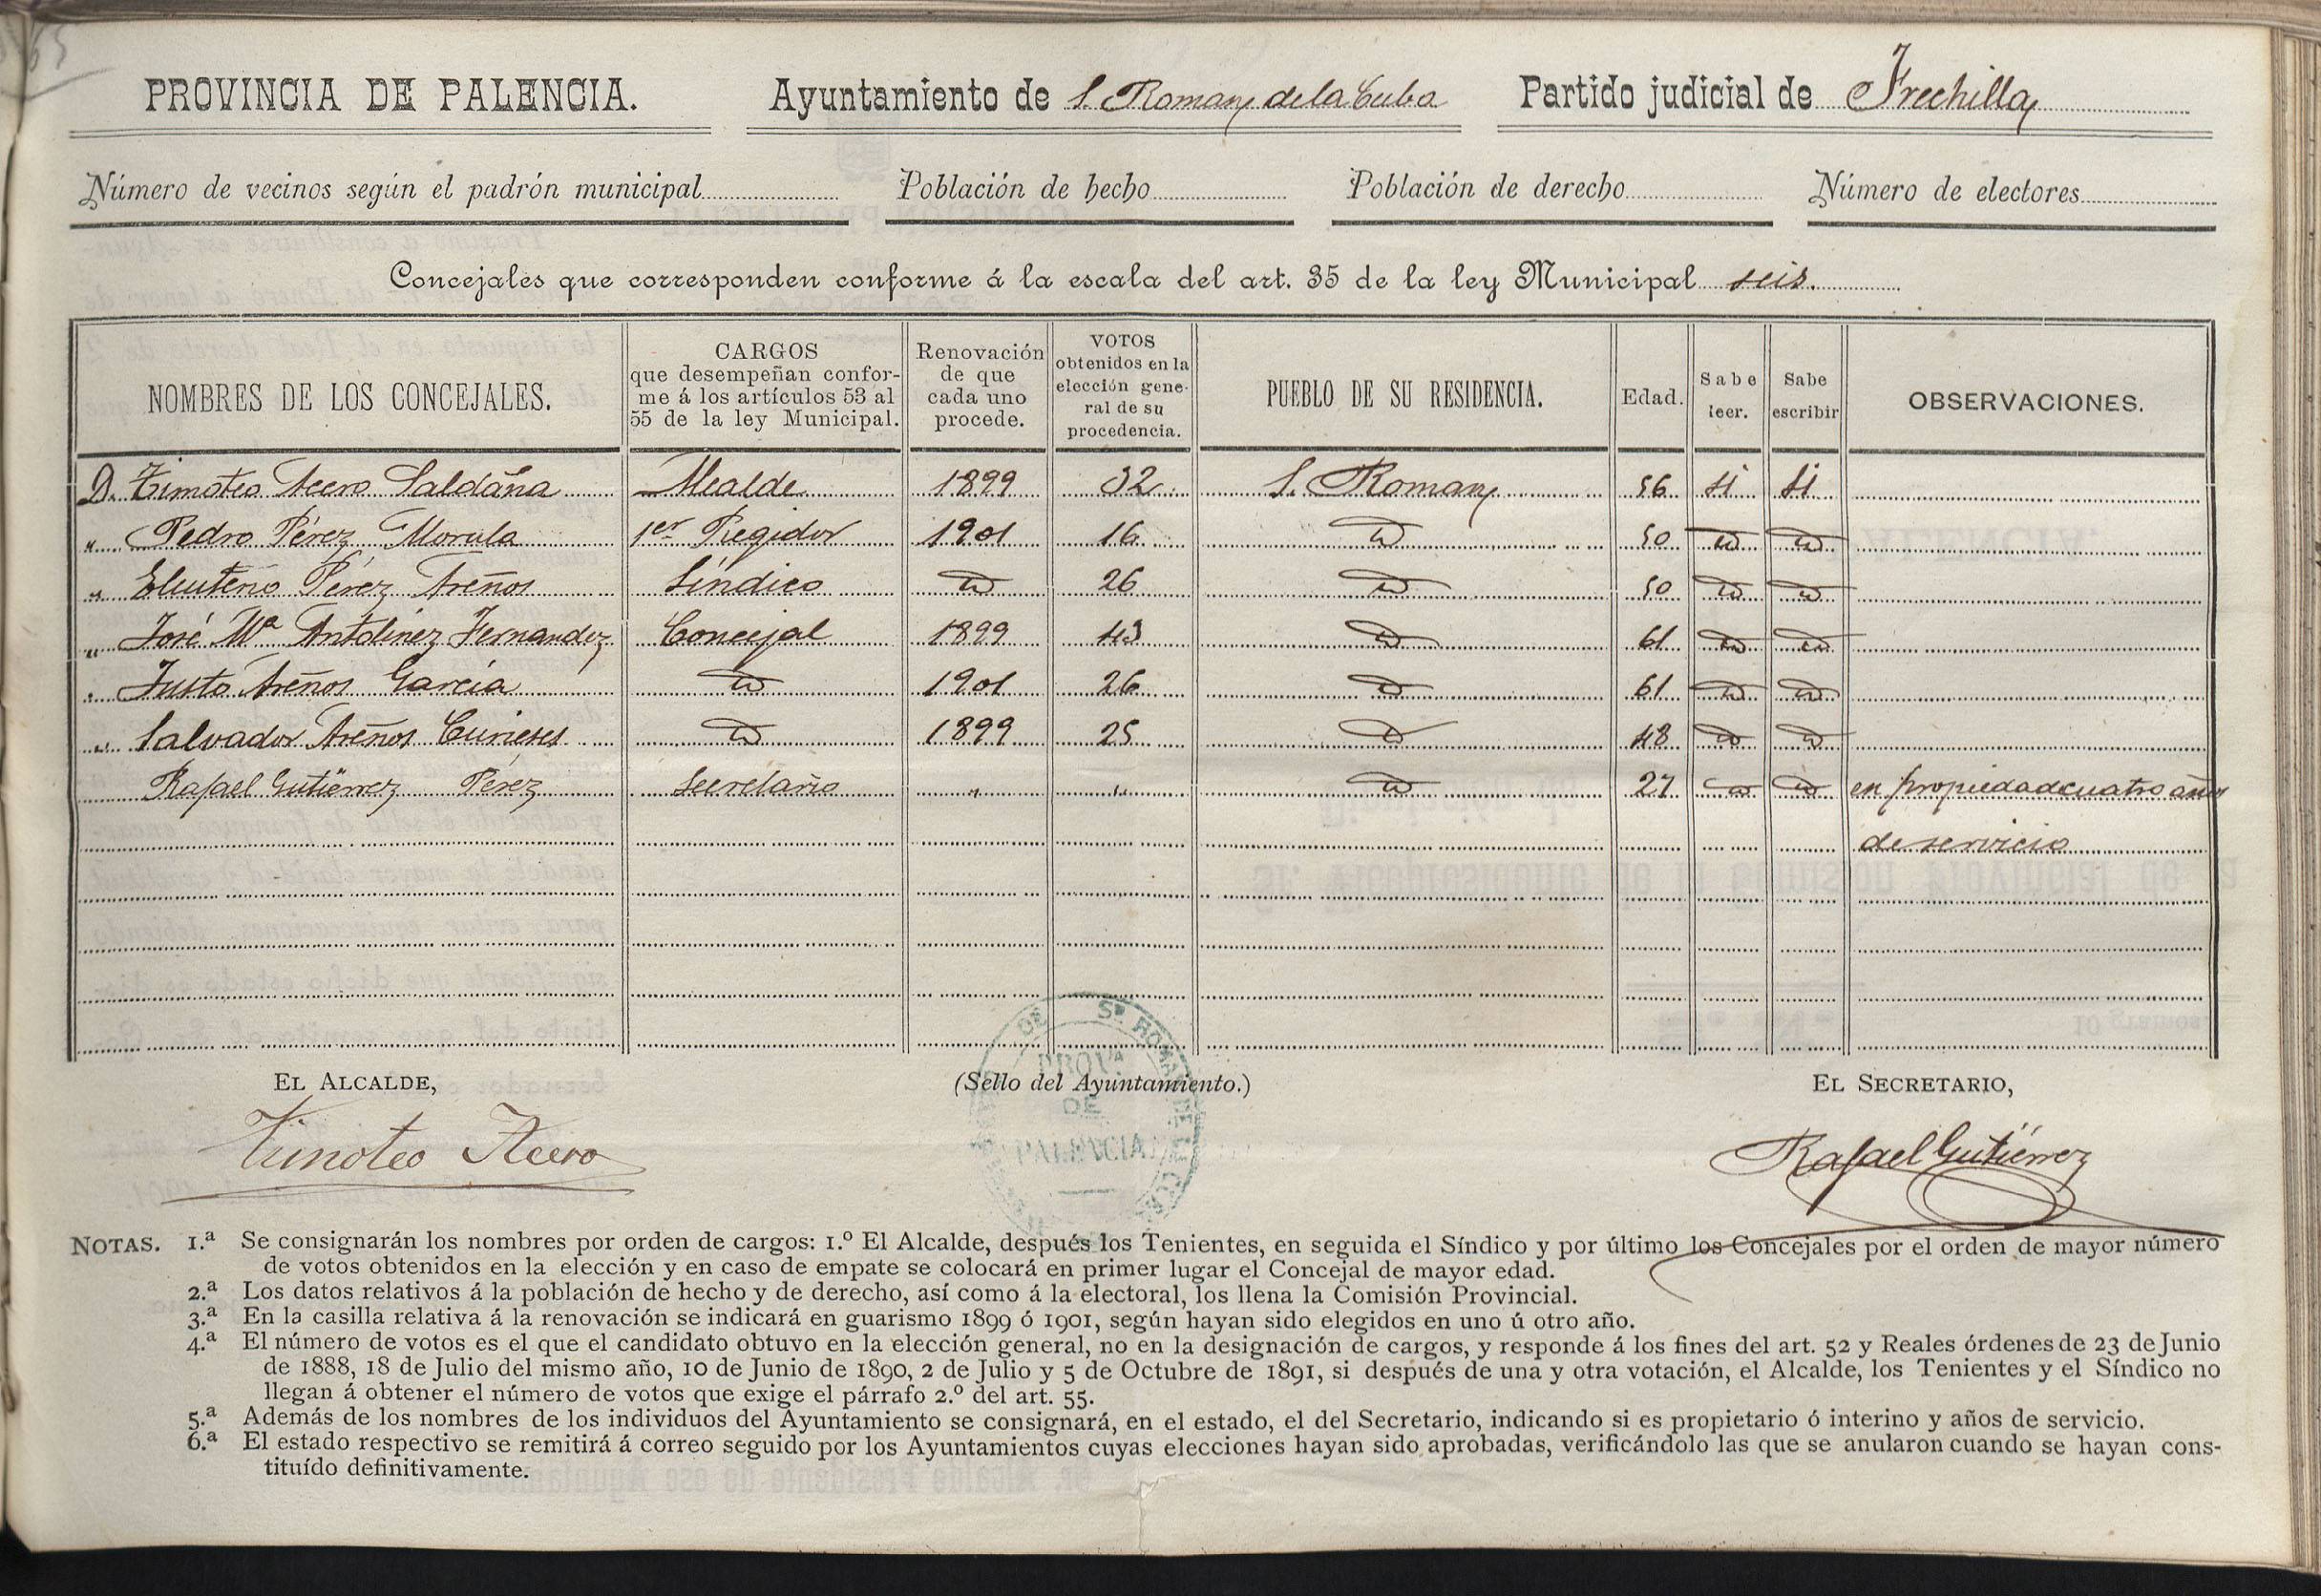 PROVINCIA DE PALENCIA. Ayuntamiento de S. Roman de la Cuba Partido judicial de Frechilla
Número de vecinos según el padrón municipal Población de hecho Población de derecho Número de electores
Concejales que corresponden conforme á la escala del art. 35 de la ley Municipal seis.
NOMBRES DE LOS CONCEJALES. CARGOS que desempeñan conforme á los artículos 53 al 55 de la ley Municipal. Renovación de que cada uno procede. VOTOS obtenidos en la elección general de su procedencia. PUEBLO DE SU RESIDENCIA. Edad. Sabe leer. Sabe escribir OBSERVACIONES.
D. Timoteo Acero Saldaña Alcalde 1899 32 S. Roman 56 si si
" Pedro Pérez Morala 1er Regidor 1901 16 id 50 id id
" Eleuterio Pérez Areños Síndico id 26 id 50 id id
" José Mª Antolinez Fernandez Concejal 1899 43 id 61 id id
" Justo Areños García id 1901 26 id 61 id id
" Salvador Areños Curieses id 1899 25 id 48 id id
Rafael Gutiérrez Pérez Secretario " " id 27 id id en propiedad cuatro años
de servicio
EL ALCALDE, (Sello del Ayuntamiento.) EL SECRETARIO,
PROVª
DE
PALENCIA
Timoteo Acero Rafael Gutiérrez
NOTAS. 1.ª Se consignarán los nombres por orden de cargos: 1.º El Alcalde, después los Tenientes, en seguida el Síndico y por último los Concejales por el orden de mayor número
de votos obtenidos en la elección y en caso de empate se colocará en primer lugar el Concejal de mayor edad.
2.ª Los datos relativos á la población de hecho y de derecho, así como á la electoral, los llena la Comisión Provincial.
3.ª En la casilla relativa á la renovación se indicará en guarismo 1899 ó 1901, según hayan sido elegidos en uno ú otro año.
4.ª El número de votos es el que el candidato obtuvo en la elección general, no en la designación de cargos, y responde á los fines del art. 52 y Reales órdenes de 23 de Junio
de 1888, 18 de Julio del mismo año, 10 de Junio de 1890, 2 de Julio y 5 de Octubre de 1891, si después de una y otra votación, el Alcalde, los Tenientes y el Síndico no
llegan á obtener el número de votos que exige el párrafo 2.º del art. 55.
5.ª Además de los nombres de los individuos del Ayuntamiento se consignará, en el estado, el del Secretario, indicando si es propietario ó interino y años de servicio.
6.ª El estado respectivo se remitirá á correo seguido por los Ayuntamientos cuyas elecciones hayan sido aprobadas, verificándolo las que se anularon cuando se hayan cons-
tituído definitivamente.